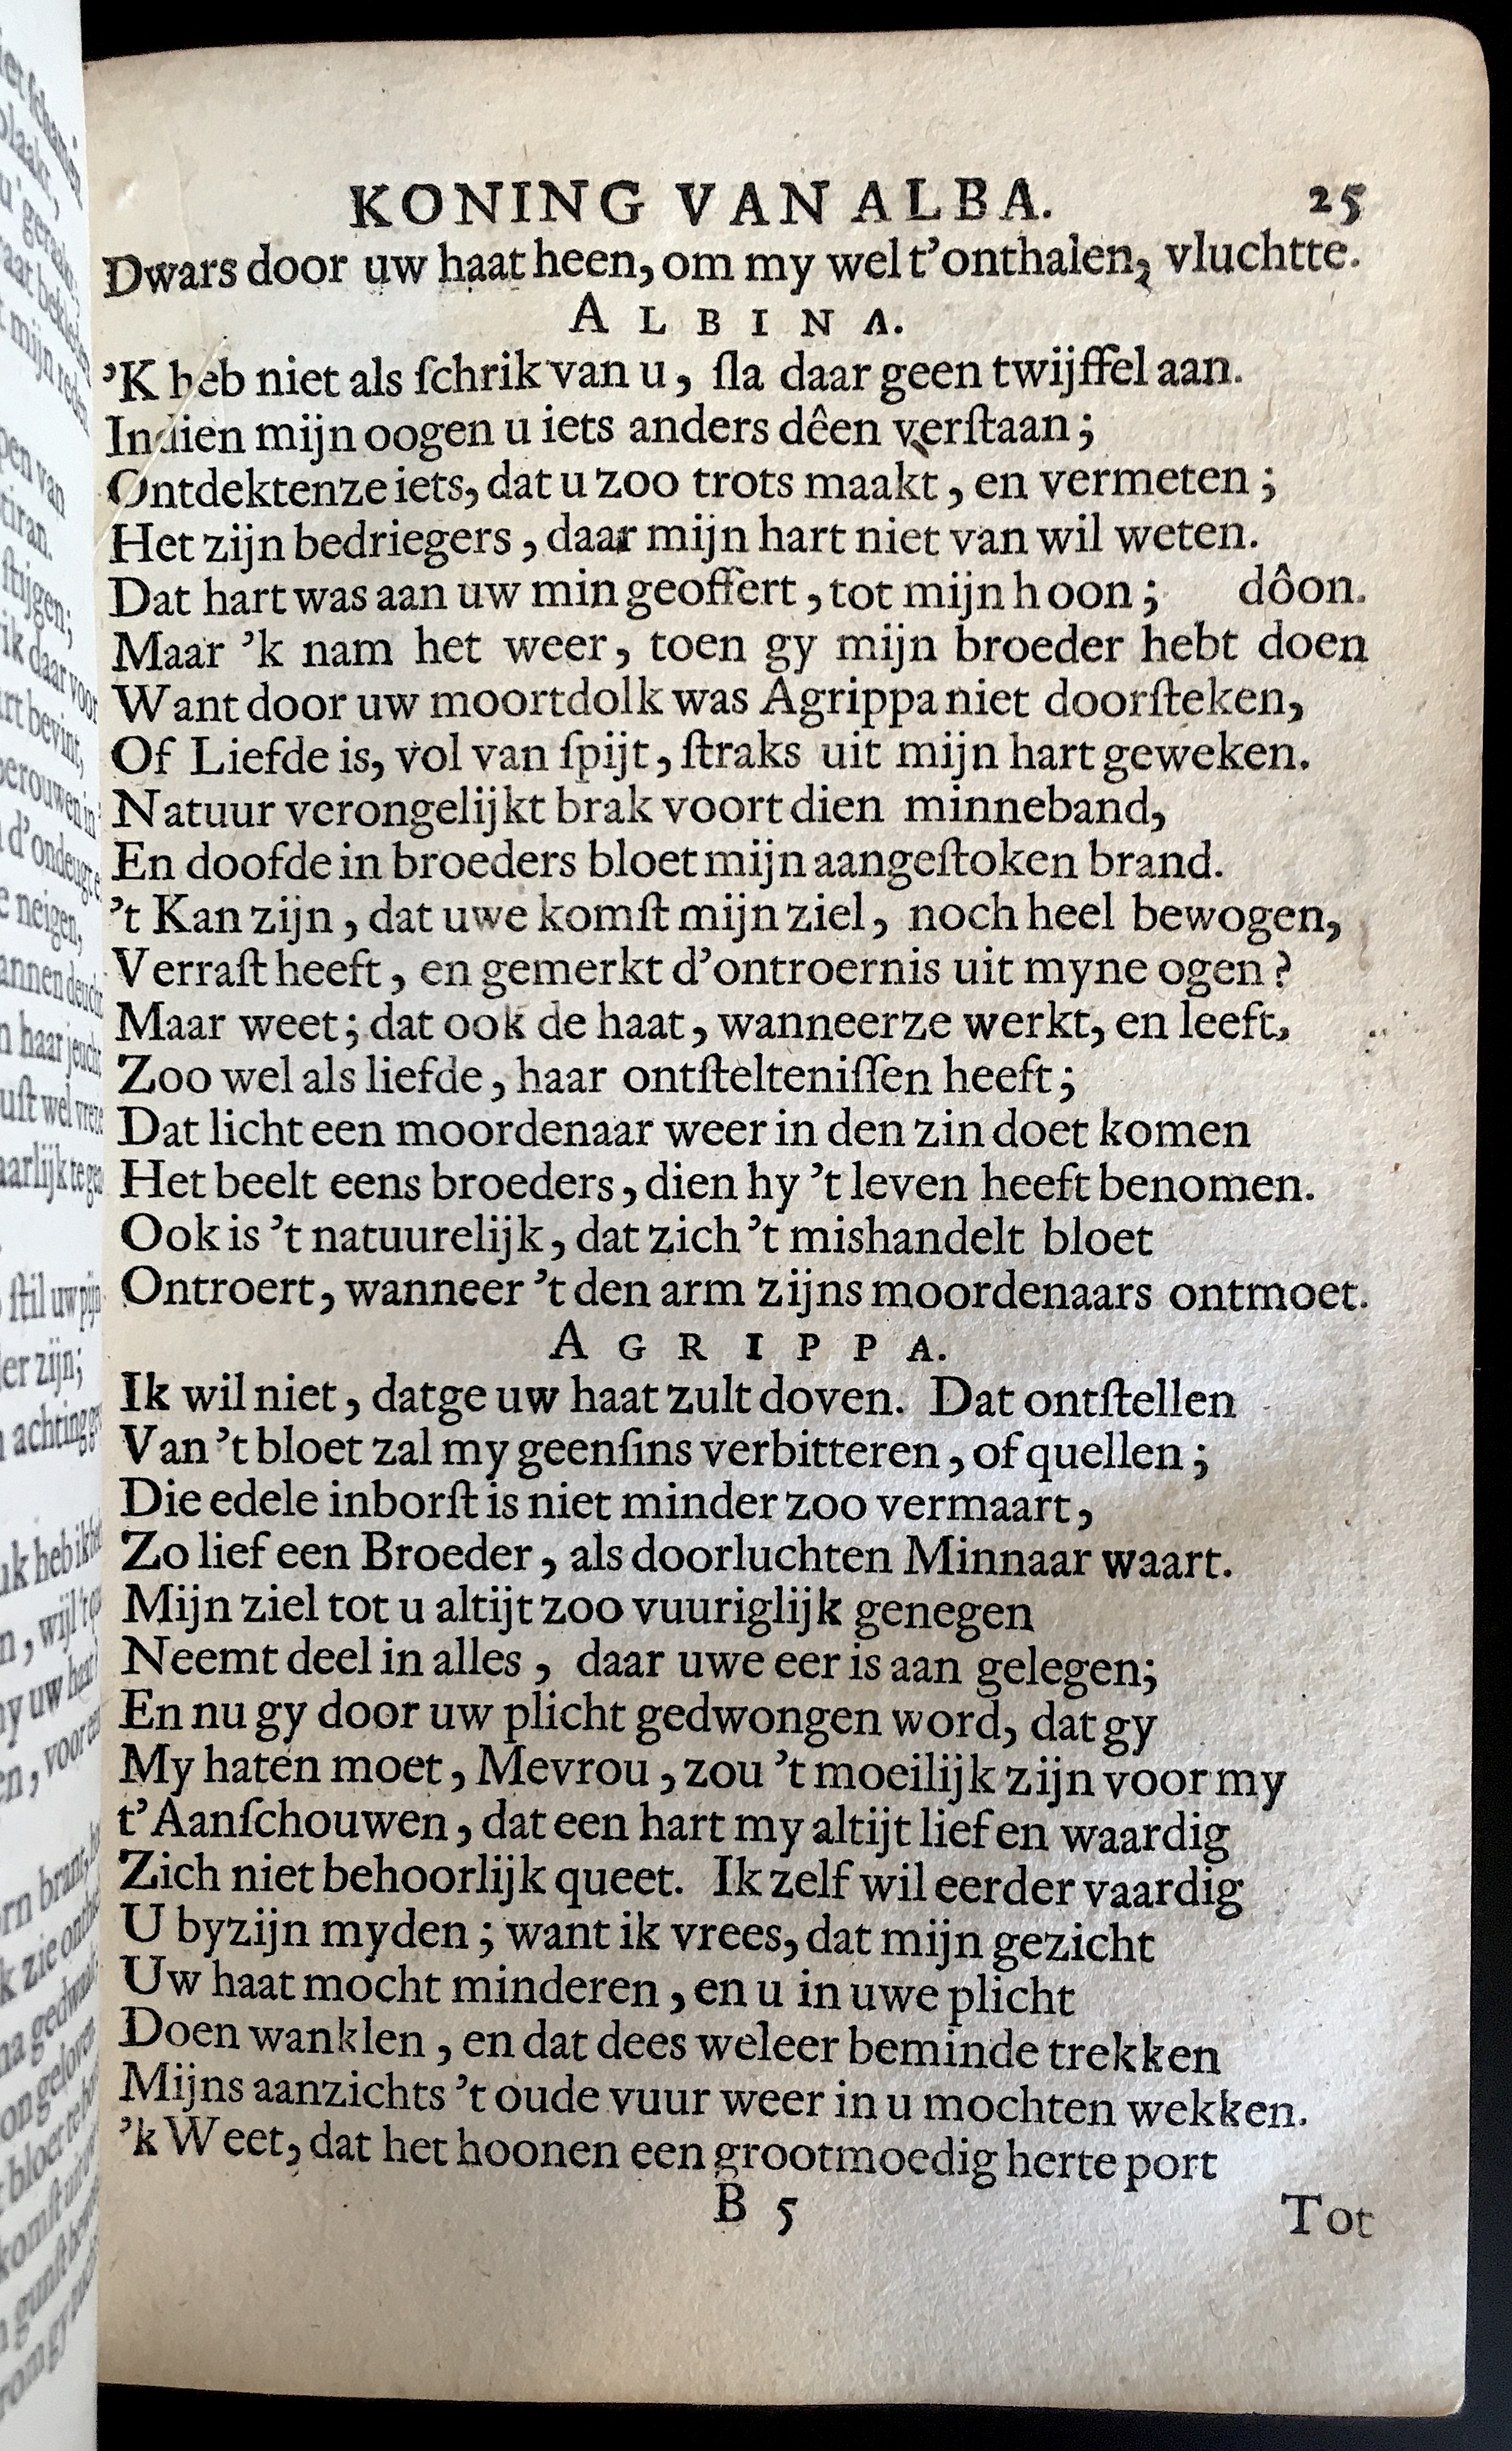 KONING VAN ALBA. 25
Dwars door uw haat heen, om my wel t'onthalen, vluchtte.
ALBINA.
'K heb niet als ſchrik van u, ſla daar geen twijffel aan.
Indien mijn oogen u iets anders dêen verſtaan;
Ontdektenze iets, dat u zoo trots maakt, en vermeten;
Het zijn bedriegers, daar mijn hart niet van wil weten.
Dat hart was aan uw min geoffert, tot mijn hoon; dôon.
Maar 'k nam het weer, toen gy mijn broeder hebt doen
Want door uw moortdolk was Agrippa niet doorſteken,
Of Liefde is, vol van ſpijt, ſtraks uit mijn hart geweken.
Natuur verongelijkt brak voort dien minneband,
En doofde in broeders bloet mijn aangeſtoken brand.
't Kan zijn, dat uwe komſt mijn ziel, noch heel bewogen,
Verraſt heeft, en gemerkt d'ontroernis uit myne ogen?
Maar weet; dat ook de haat, wanneerze werkt, en leeft,
Zoo wel als liefde, haar ontſtelteniſſen heeft;
Dat licht een moordenaar weer in den zin doet komen
Het beelt eens broeders, dien hy 't leven heeft benomen.
Ook is 't natuurelijk, dat zich 't mishandelt bloet
Ontroert, wanneer 't den arm zijns moordenaars ontmoet.
AGRIPPA.
Ik wil niet, datge uw haat zult doven. Dat ontſtellen
Van 't bloet zal my geenſins verbitteren, of quellen;
Die edele inborſt is niet minder zoo vermaart,
Zo lief een Broeder, als doorluchten Minnaar waart.
Mijn ziel tot u altijt zoo vuuriglijk genegen
Neemt deel in alles, daar uwe eer is aan gelegen;
En nu gy door uw plicht gedwongen word, dat gy
My haten moet, Mevrou, zou 't moeilijk zijn voor my
t'Aanſchouwen, dat een hart my altijt lief en waardig
Zich niet behoorlijk queet. Ik zelf wil eerder vaardig
U byzijn myden; want ik vrees, dat mijn gezicht
Uw haat mocht minderen, en u in uwe plicht
Doen wanklen, en dat dees weleer beminde trekken
Mijns aanzichts 't oude vuur weer in u mochten wekken.
'k Weet, dat het hoonen een grootmoedig herte port
B 5 Tot